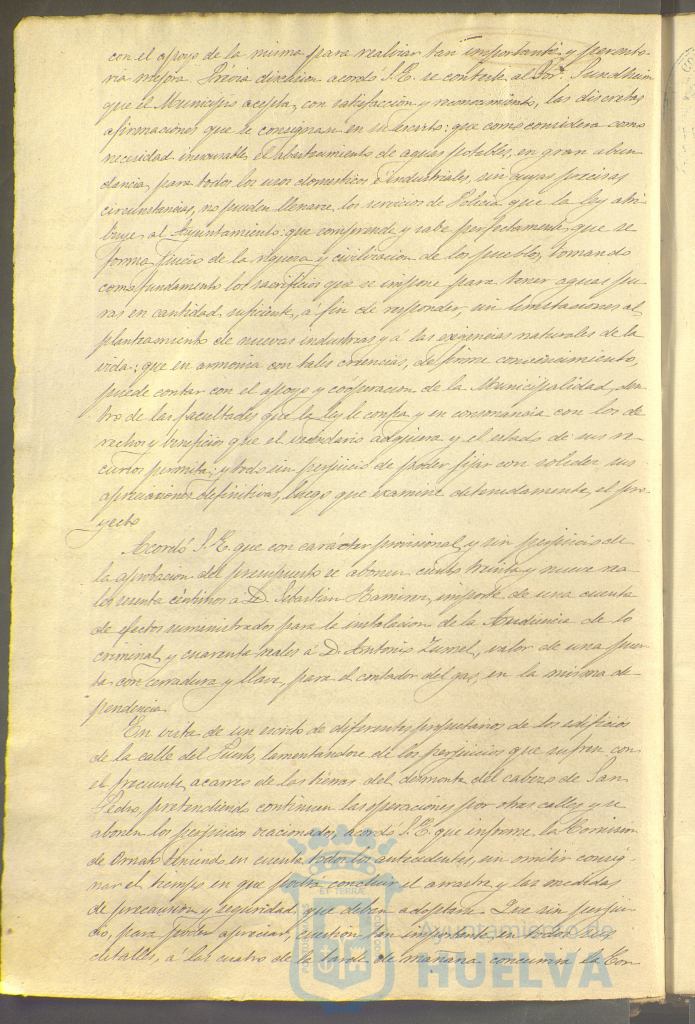 con el apoyo de la misma para realizar tan importante y perento-
ria mejora. Prévia discusion acordó S.E. se conteste al Sor. Sundheim
que el Municipio acepta, con satisfaccion y reconocimiento, las discretas
afirmaciones que se consignan en su escrito: que como considera como
necesidad inexcusable, el abastecimiento de aguas potables, en gran abun
dancia, para todos los usos domesticos é industriales, sin cuyas precisas
circunstancias, no pueden llenarse los servicios de Policia que la ley atri-
buye al Ayuntamiento: que comprende y sabe perfectamente, que se
forma juicio de la riqueza y civilizacion de los pueblos, tomando
como fundamento los sacrificios que se impone para tener aguas pu
ras en cantidad suficiente, á fin de responder, sin limitaciones al
planteamiento de nuevas industrias y á las exigencias naturales de la
vida: que en armonia con tales creencias, de firme convencimiento,
puede contar con el apoyo y cooperacion de la Municipalidad, den
tro de las facultades que la ley le confia y en consonancia con los de
rechos y beneficios que el vecindario adquiera y el estado de sus re-
cursos permita: y todo sin perjuicio de poder fijar con solidez sus
apreciaciones definitivas, luego que examine detenidamente, el pro-
yecto
Acordó S.E. que con carácter provisional y sin perjuicio de
la aprobacion del presupuesto se abonen ciento treinta y nueve rea
les sesenta céntimos á D. Sebastian Ramirez, importe de una cuenta
de efectos suministrados para la instalacion de la Audiencia de lo
criminal, y cuarenta reales á D. Antonio Zumel, valor de una puer
ta con cerradura y llave, para el contador del gas, en la misma de-
pendencia.
En vista de un escrito de diferentes propietarios de los edificios
de la calle del Puerto, lamentandose de los perjuicios que sufren con
el frecuente acarreo de las tierras del desmonte del cabezo de San
Pedro, pretendiendo continuen las operaciones por otras calles y se
abonen los perjuicios ocacionados, acordó S.E. que informe la Comision
de Ornato teniendo en cuenta todos los antecedentes, sin omitir consig-
nar el tiempo en que podrá concluir el arrastre y las medidas
de precaucion y seguridad que deben adoptarse. Que sin perjui-
cio, para poder apreciar, cuestion tan importante en todos sus
detalles, á las cuatro de la tarde de mañana concurrirá la Com-
Ayuntamiento de
HUELVA